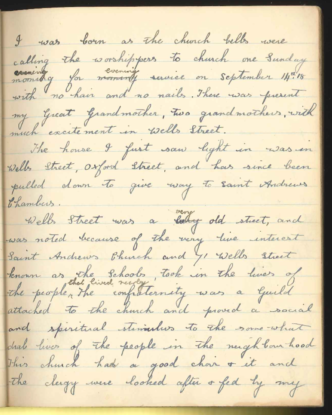 I was born as the church bells were
calling the worshippers to church one Sunday
evening
evening
morning for morning service on September 14th 18
with no hair and no nails. There was present
my Great Grandmother, two grandmothers, with
much excitement in Wells Street.
The house I first saw light in was in
Wells Street, Oxford Street, and has since been
pulled down to give way to Saint Andrews
Chambers.
very
Wells Street was a old street, and
was noted because of the very live interest
Saint Andrews Church and 71 Wells Street
known as the Schools, took in the lives of
that lived nearby
the people, The confraternity was a Guild
attached to the church and proved a social
and spiritual stimulus to the somewhat
dull lives of the people in the neighbourhood
This church had a good choir & it and
the clergy were looked after & fed by my